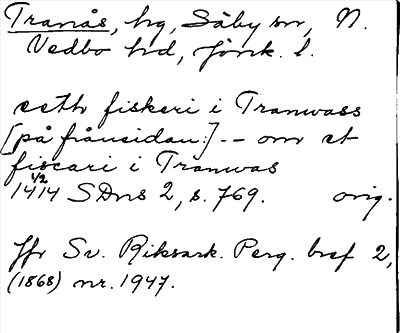 Tranås, hg, Säby sn, N.
Vedbo hd, Jönk. l.
eeth fiskeri i Tranwass
[på frånsidan:] -- om et
fiscari i Tranwas
1/2 1414 SDns 2, s. 769. orig.
Jfr Sv. Riksark. Perg. bref 2,
(1868) nr. 1947.